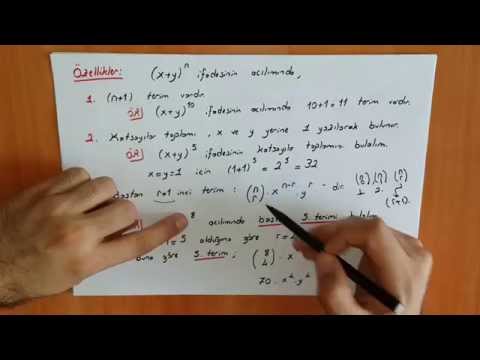 Özellikler: (x+y)^n ifadesinin açılımında,
1. (n+1) terim vardır.
ÖR (x+y)^10 ifadesinin açılımında 10+1=11 terim vardır.
2. Katsayılar toplamı, x ve y yerine 1 yazılarak bulunur.
ÖR (x+y)^5 ifadesinin katsayılar toplamını bulalım.
x=y=1 için (1+1)^5 = 2^5 = 32
baştan r+1 inci terim : (n r) . x^n-r . y^r dir.
8 açılımında baştan 5. terimi bulalım
= 5 olduğuna göre r=
buna göre 5. terim ; (8 4) . x
70 . x^4 . y^4